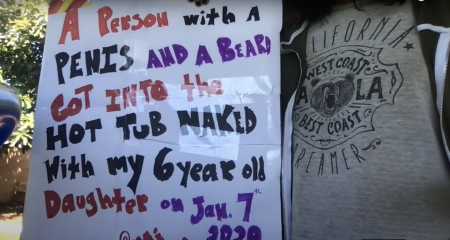 A Person with A
PENIS AND A BEARD
GOT INTO the
HOT TUB NAKED
With my 6 year old
Daughter on Jan. 7th
2020
CALIFORNIA
WEST COAST
LA
BEST COAST
DREAMER